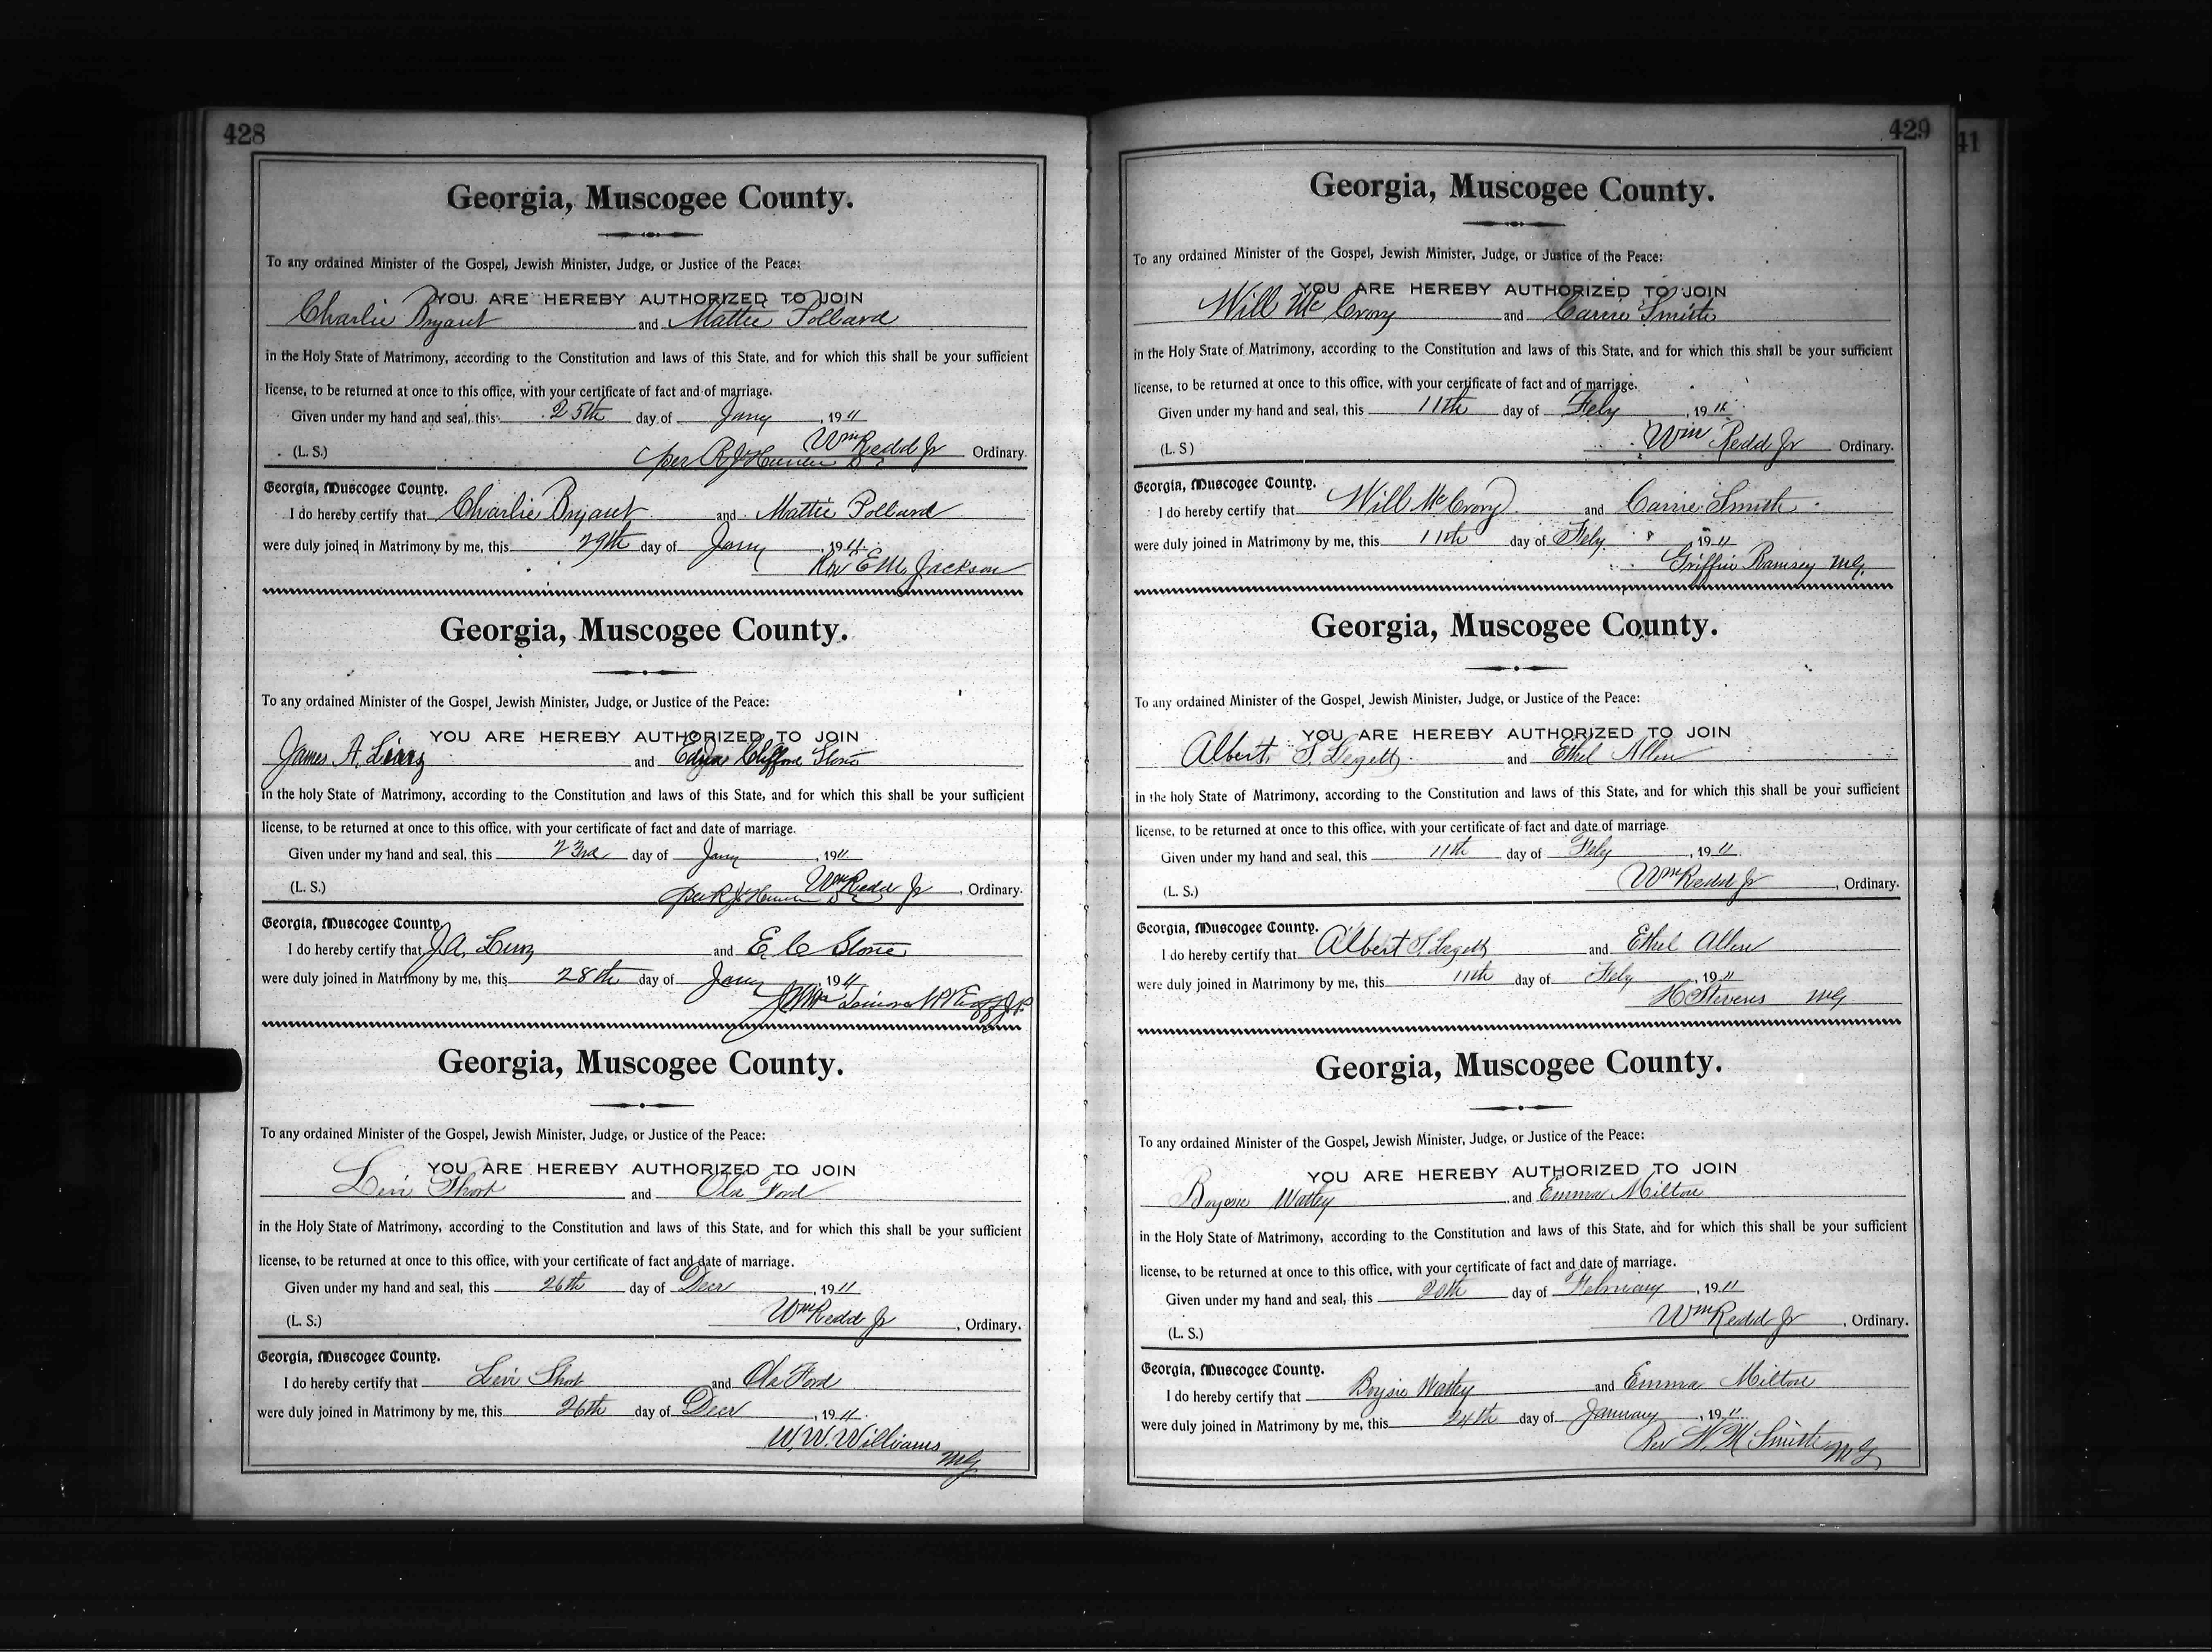 428
Georgia, Muscogee County.
To any ordained Minister of the Gospel, Jewish Minister, Judge, or Justice of the Peace:
YOU ARE HEREBY AUTHORIZED TO JOIN
Charlie Bryant and Mattie Pollard
in the Holy State of Matrimony, according to the Constitution and laws of this State, and for which this shall be your sufficient
license, to be returned at once to this office, with your certificate of fact and of marriage.
Given under my hand and seal, this 25th day of Jany, 1911
(L. S.) Wm Redd Jr Ordinary.
per R J Hunter
Georgia, Muscogee County.
I do hereby certify that Charlie Bryant and Mattie Pollard
were duly joined in Matrimony by me, this 29th day of Jany, 1911.
Rev E M Jackson
Georgia, Muscogee County.
To any ordained Minister of the Gospel, Jewish Minister, Judge, or Justice of the Peace:
YOU ARE HEREBY AUTHORIZED TO JOIN
James A. and Clifford Stone
in the holy State of Matrimony, according to the Constitution and laws of this State, and for which this shall be your sufficient
license, to be returned at once to this office, with your certificate of fact and date of marriage.
Given under my hand and seal, this 23rd day of Jany, 1911
(L. S.) Wm Redd Jr, Ordinary.
per R J Hunter
Georgia, Muscogee County.
I do hereby certify that J. A. and E. C Stone
were duly joined in Matrimony by me, this 28th day of Jany 1911
Georgia, Muscogee County.
To any ordained Minister of the Gospel, Jewish Minister, Judge, or Justice of the Peace:
YOU ARE HEREBY AUTHORIZED TO JOIN
Levi Short and Ola Ford
in the Holy State of Matrimony, according to the Constitution and laws of this State, and for which this shall be your sufficient
license, to be returned at once to this office, with your certificate of fact and date of marriage.
Given under my hand and seal, this 26th day of Decr, 1911
(L. S.) Wm Redd Jr, Ordinary.
Georgia, Muscogee County.
I do hereby certify that Levi Short and Ola Ford
were duly joined in Matrimony by me, this 26th day of Decr, 1911.
W. W. Williams
MG
429
41
Georgia, Muscogee County.
To any ordained Minister of the Gospel, Jewish Minister, Judge, or Justice of the Peace:
YOU ARE HEREBY AUTHORIZED TO JOIN
Will McCrory and Carrie Smith
in the Holy State of Matrimony, according to the Constitution and laws of this State, and for which this shall be your sufficient
license, to be returned at once to this office, with your certificate of fact and of marriage.
Given under my hand and seal, this 11th day of Feby, 1911.
(L. S) Wm Redd Jr Ordinary.
Georgia, Muscogee County.
I do hereby certify that Will McCrory and Carrie Smith
were duly joined in Matrimony by me, this 11th day of Feby 1911
Griffin Ramsey MG.
Georgia, Muscogee County.
To any ordained Minister of the Gospel, Jewish Minister, Judge, or Justice of the Peace:
YOU ARE HEREBY AUTHORIZED TO JOIN
Albert S. Legett and Ethel Allen
in the holy State of Matrimony, according to the Constitution and laws of this State, and for which this shall be your sufficient
license, to be returned at once to this office, with your certificate of fact and date of marriage.
Given under my hand and seal, this 11th day of Feby, 1911.
(L. S.) Wm Redd Jr, Ordinary.
Georgia, Muscogee County.
I do hereby certify that Albert S. Legett and Ethel Allen
were duly joined in Matrimony by me, this 11th day of Feby, 1911
H Stevens MG
Georgia, Muscogee County.
To any ordained Minister of the Gospel, Jewish Minister, Judge, or Justice of the Peace:
YOU ARE HEREBY AUTHORIZED TO JOIN
Boysie Watley and Emma Milton
in the Holy State of Matrimony, according to the Constitution and laws of this State, and for which this shall be your sufficient
license, to be returned at once to this office, with your certificate of fact and date of marriage.
Given under my hand and seal, this 20th day of February, 1911
(L. S.) Wm Redd Jr, Ordinary.
Georgia, Muscogee County.
I do hereby certify that Boysie Watley and Emma Milton
were duly joined in Matrimony by me, this 24th day of January, 1911.
Rev H. M Smith MG